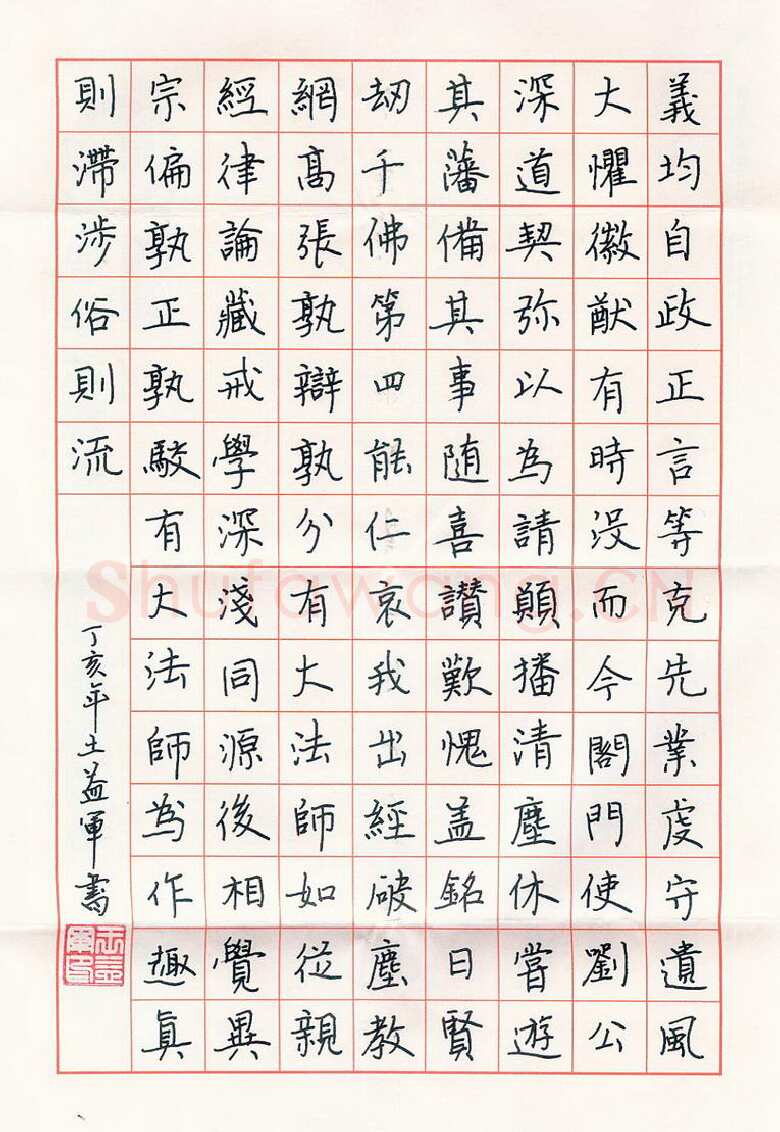 義均自政正言等克先業虔守遺風
大懼徽猷有時沒而今閤門使劉公
深道契弥以為請願播清塵休嘗遊
其藩備其事随喜讃歎愧盖銘曰賢
劫千佛第四能仁哀我出經破塵教
網髙張孰辯孰分有大法師如從親
經律論藏戒學深淺同源後相覺異
宗偏孰正孰駮有大法師為作趣眞
則滯涉俗則流
丁亥年王益軍書
王益軍印
Shufawang.CN